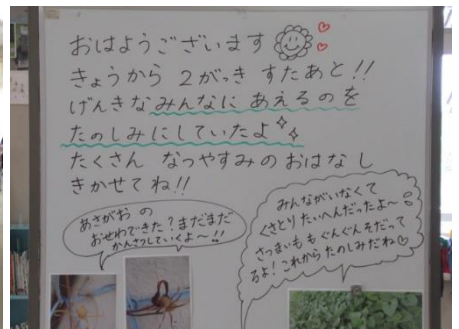 おはようございます
きょうから 2がっき すたあと!!
げんきなみんなに あえるのを
たのしみにしていたよ
たくさん なつやすみの おはなし
きかせてね!!
あさがおの
おせわできた?まだまだ
かんさつしていくよ〜!!
みんながいなくて
くさとり たいへんだったよ〜
さつまいもも ぐんぐんそだって
るよ!これからたのしみだね♡